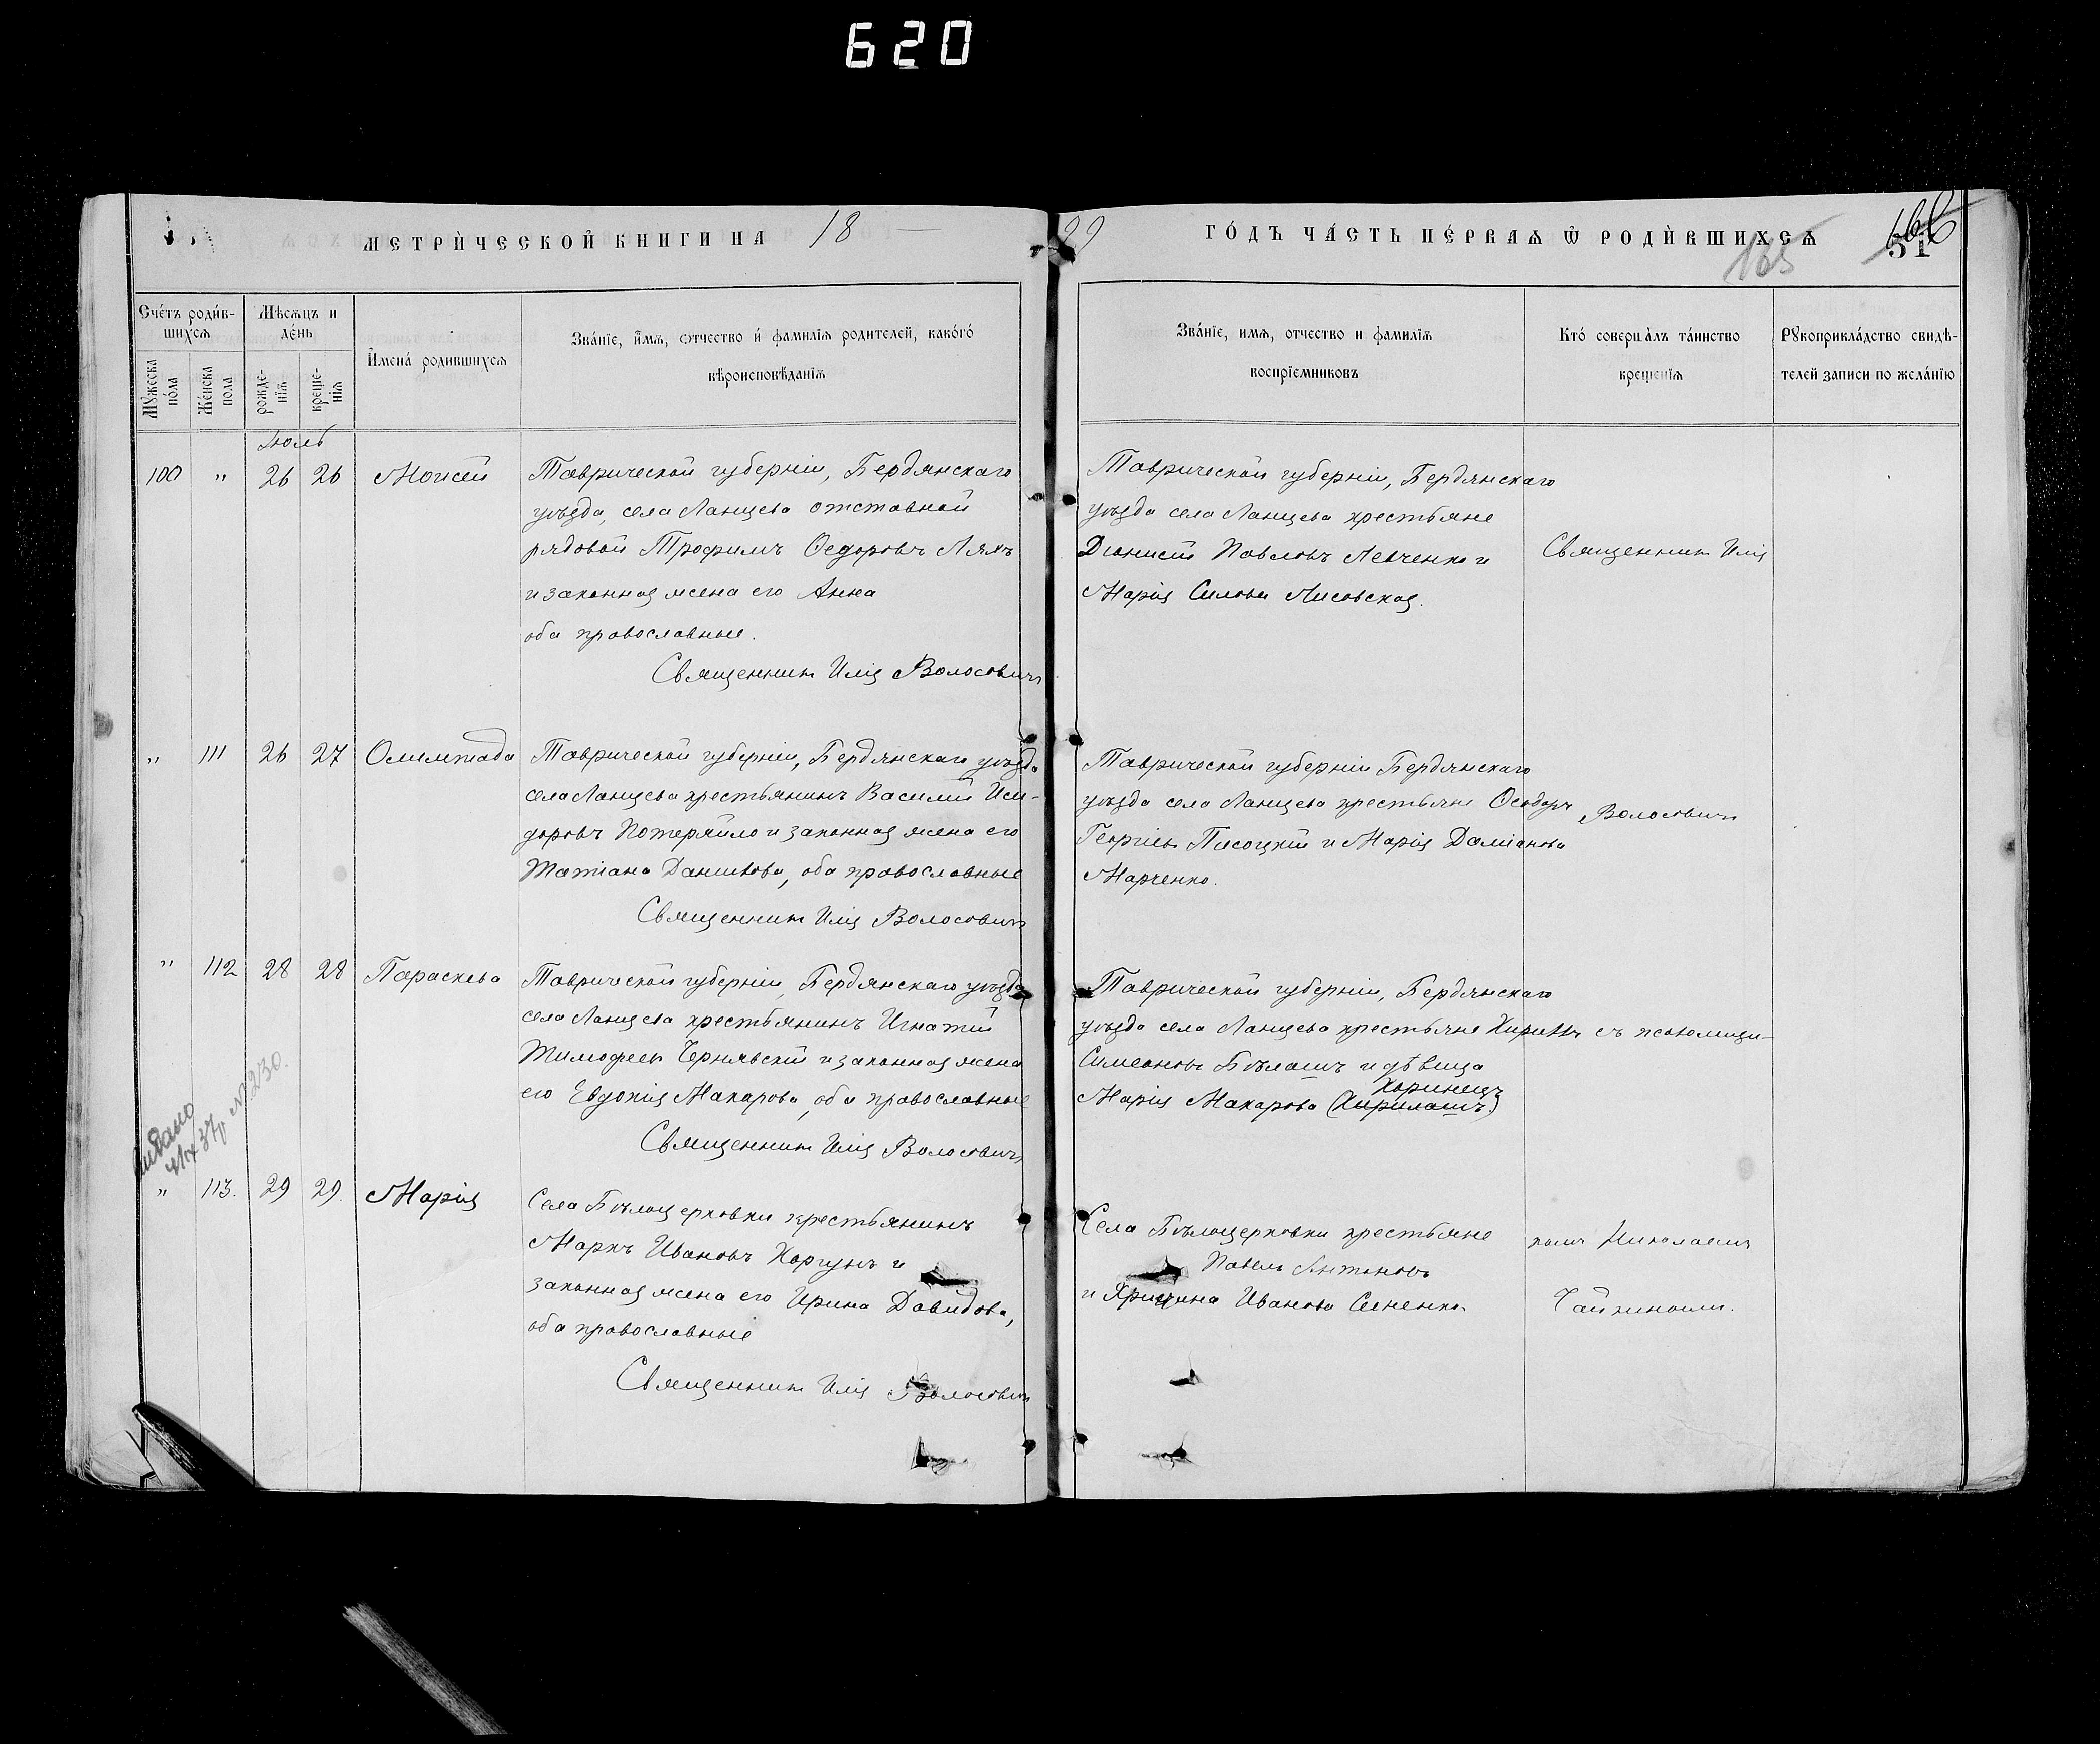 620
МЕТРИ́ЧЕСКОЙ КНИГИ НА 18
99 ГО́ДЪ ЧА́СТЬ ПЕ́РВАѦ Ѿ РОДИ́ВШИХСѦ
165
166
51
Сче́тъ роди́в-
шихсѧ
Мѣсѧцъ и
де́нь
Мꙋжеска
по́ла
Же́нска
пола
рожде-
нїѧ
креще-
нїѧ
И҆мена́ родившихсѧ
Зва́нїе, и҆мѧ, ѻтчество и҆ фамилїѧ родителей, како́го́
вѣроисповѣданїѧ
Зва́нїе, имѧ, отчество и фамилїѧ
воспрїемниковъ
Кто́ соверша̀лъ та́инство
крещенїѧ
Рꙋкоприкла́дство свидѣ-
телей записи по жела́нїю
Іюль
100 " 26 26 Моисей
Таврической губерніи, Бердянскаго
уѣзда, села Ланцева отставной
рядовой Трофимъ Ѳедоровъ Ляхъ
и законная жена его Анна
оба православные.
Священникъ Илія Волосовичъ
Таврической губерніи, Бердянскаго
уѣзда села Ланцева крестьяне
Діонисій Павловъ Левченко и
Марія Силова Лисовская.
Священник Илія
" 111 26 27 Олимпіада
Таврической губерніи, Бердянскаго уѣзда
села Ланцева крестьянинъ Василій Иси-
доровъ Потеряйло и законная жена его
Татіана Данилова, оба православные
Священникъ Илія Волосовичъ
Таврической губерніи Бердянскаго
уѣзда села Ланцева крестьяне Ѳеодоръ
Георгіевъ Писоцкій и Марія Даміанова
Марченко.
Волосовичъ
" 112 28 28 Параскева
Таврической губерніи, Бердянскаго уѣзда
села Ланцева крестьянинъ Игнатій
Тимофеевъ Чернявскій и законная жена
его Евдокія Макарова, оба православные
Священникъ Илія Волосовичъ
Таврической губерніи, Бердянскаго
уѣзда села Ланцева крестьяне
Симеоновъ Бѣлашъ и дѣвица
Марія Макарова
съ псаломщи-
видано
37 № 230.
" 113. 29 29. Марія
Села Бѣлоцерковки крестьянинъ
Маркъ Ивановъ Коргунъ и
законная жена его Ирина Давидова,
оба православные
Священникъ Илія Волосовичъ
Села Бѣлоцерковки крестьяне
Павелъ Антоновъ
и Ивановна Сененко.
комъ Николаемъ
Чайкиномъ.